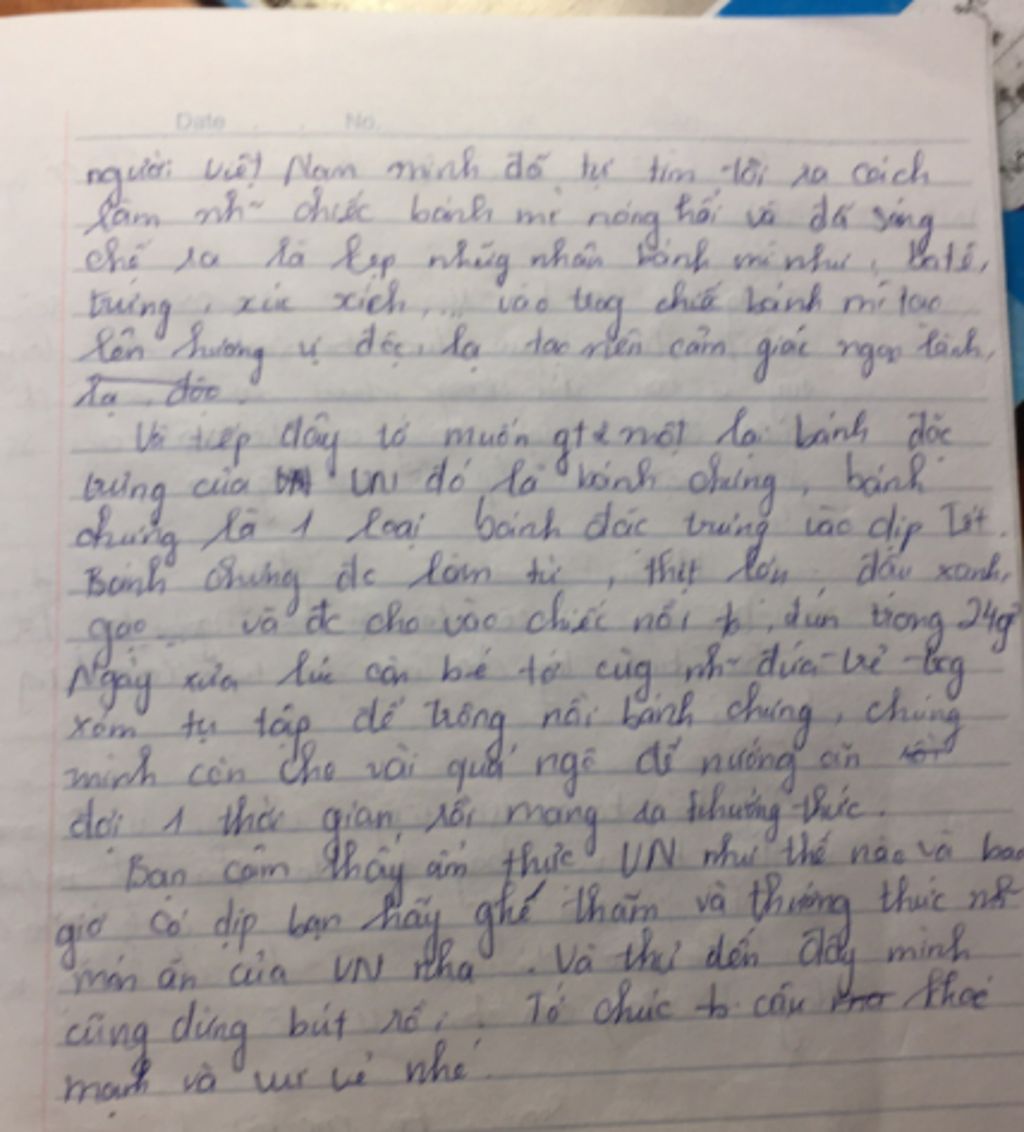 Date No.
người Việt Nam mình đã tự tìm tòi ra cách
làm nh~ chiếc bánh mì nóng hổi và đã sáng
chế ra là kẹp những nhân bánh mì như, Patê,
trứng, xúc xích,... vào trog chiế bánh mì tạo
lên hương vị độc, lạ tạo nên cảm giác ngon lành,
lạ độc
Và tiếp đây tớ muốn gt một loại bánh đặc
trưng của VN đó là bánh chưng, bánh
chưng là 1 loại bánh đặc trưng vào dịp Tết.
Bánh chưng đc làm từ, thịt lợn, đậu xanh,
gạo... và đc cho vào chiếc nồi to, đun trong 24g
Ngày xưa lúc còn bé tớ cùg nh~ đứa trẻ trog
xóm tụ tập để trông nồi bánh chưng, chúng
mình còn cho vài quả ngô để nướng ăn
đợi 1 thời gian, rồi mang ra thưởng thức.
Bạn cảm thấy ẩm thực VN như thế nào và bao
giờ có dịp bạn hãy ghé thăm và thưởng thức nh~
món ăn của VN nha. Và thư đến đây mình
cũng dừng bút rồi. Tớ chúc b cậu khoẻ
mạnh và vui vẻ nhé.